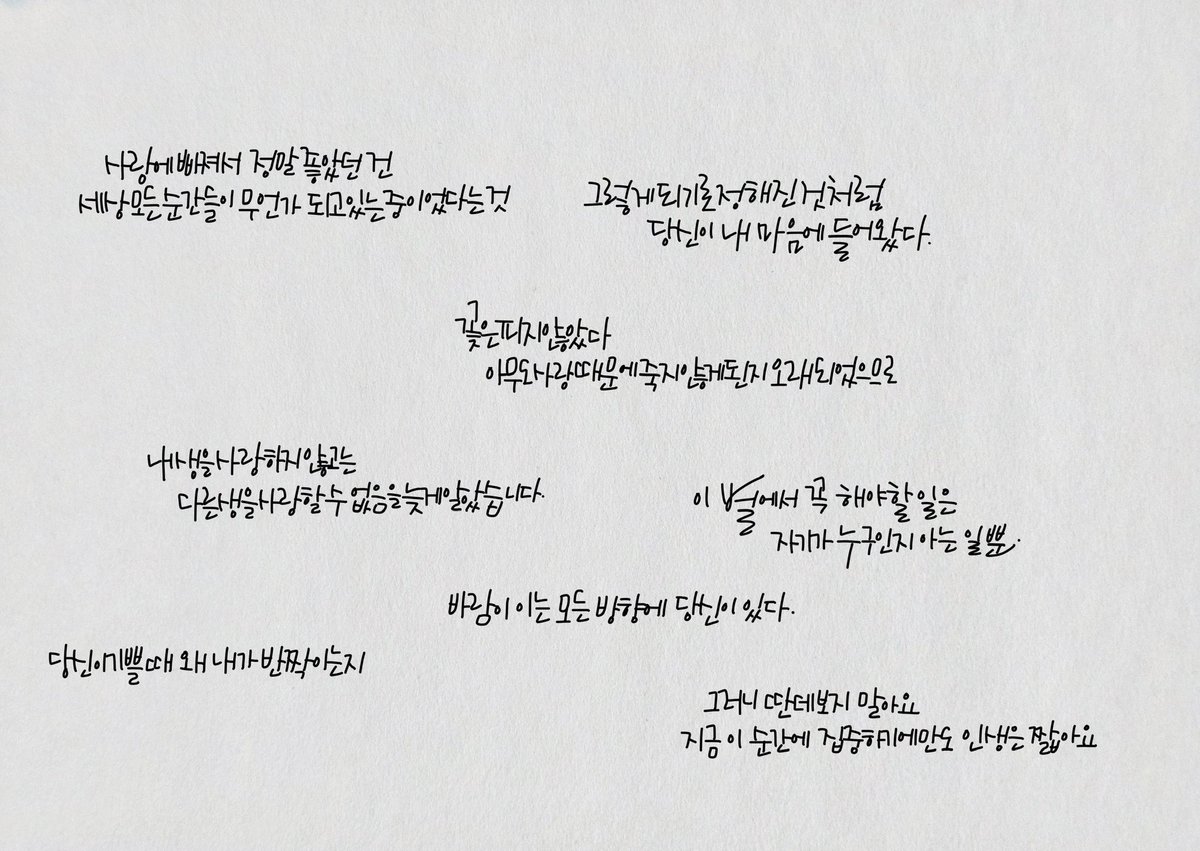 사랑에 빠져서 정말 좋았던 건
세상 모든 순간들이 무언가 되고 있는 중이었다는 것
그렇게 되기로 정해진 것처럼
당신이 내 마음에 들어왔다.
꽃은 피지 않았다
아무도 사랑 때문에 죽지 않게 된 지 오래되었으므로
내 생을 사랑하지 않고는
다른 생을 사랑할 수 없음을 늦게 알았습니다.
이 별에서 꼭 해야할 일은
자기가 누구인지 아는 일 뿐.
바람이 이는 모든 방향에 당신이 있다.
당신이 기쁠 때 왜 내가 반짝이는지
그러니 딴데보지 말아요
지금 이 순간에 집중하기에만도 인생은 짧아요